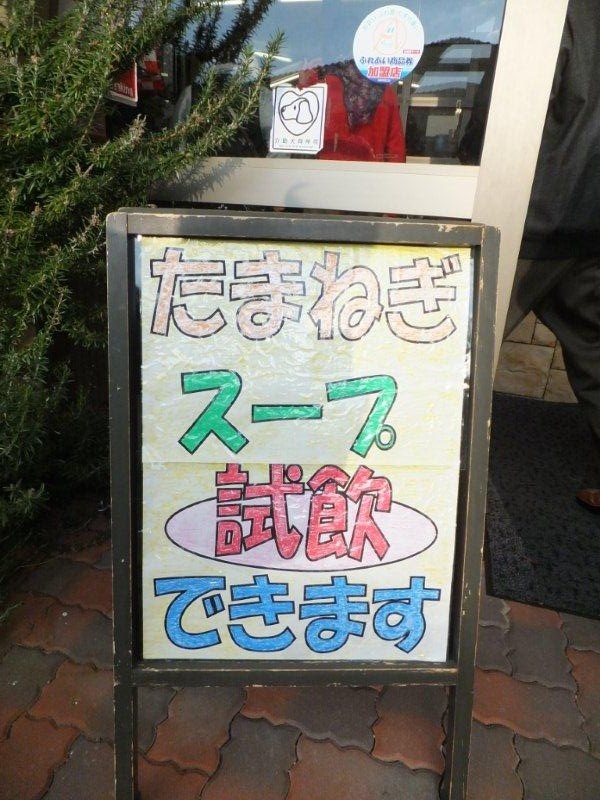 ふれあい商品券
加盟店
たまねぎ
スープ
試飲
できます